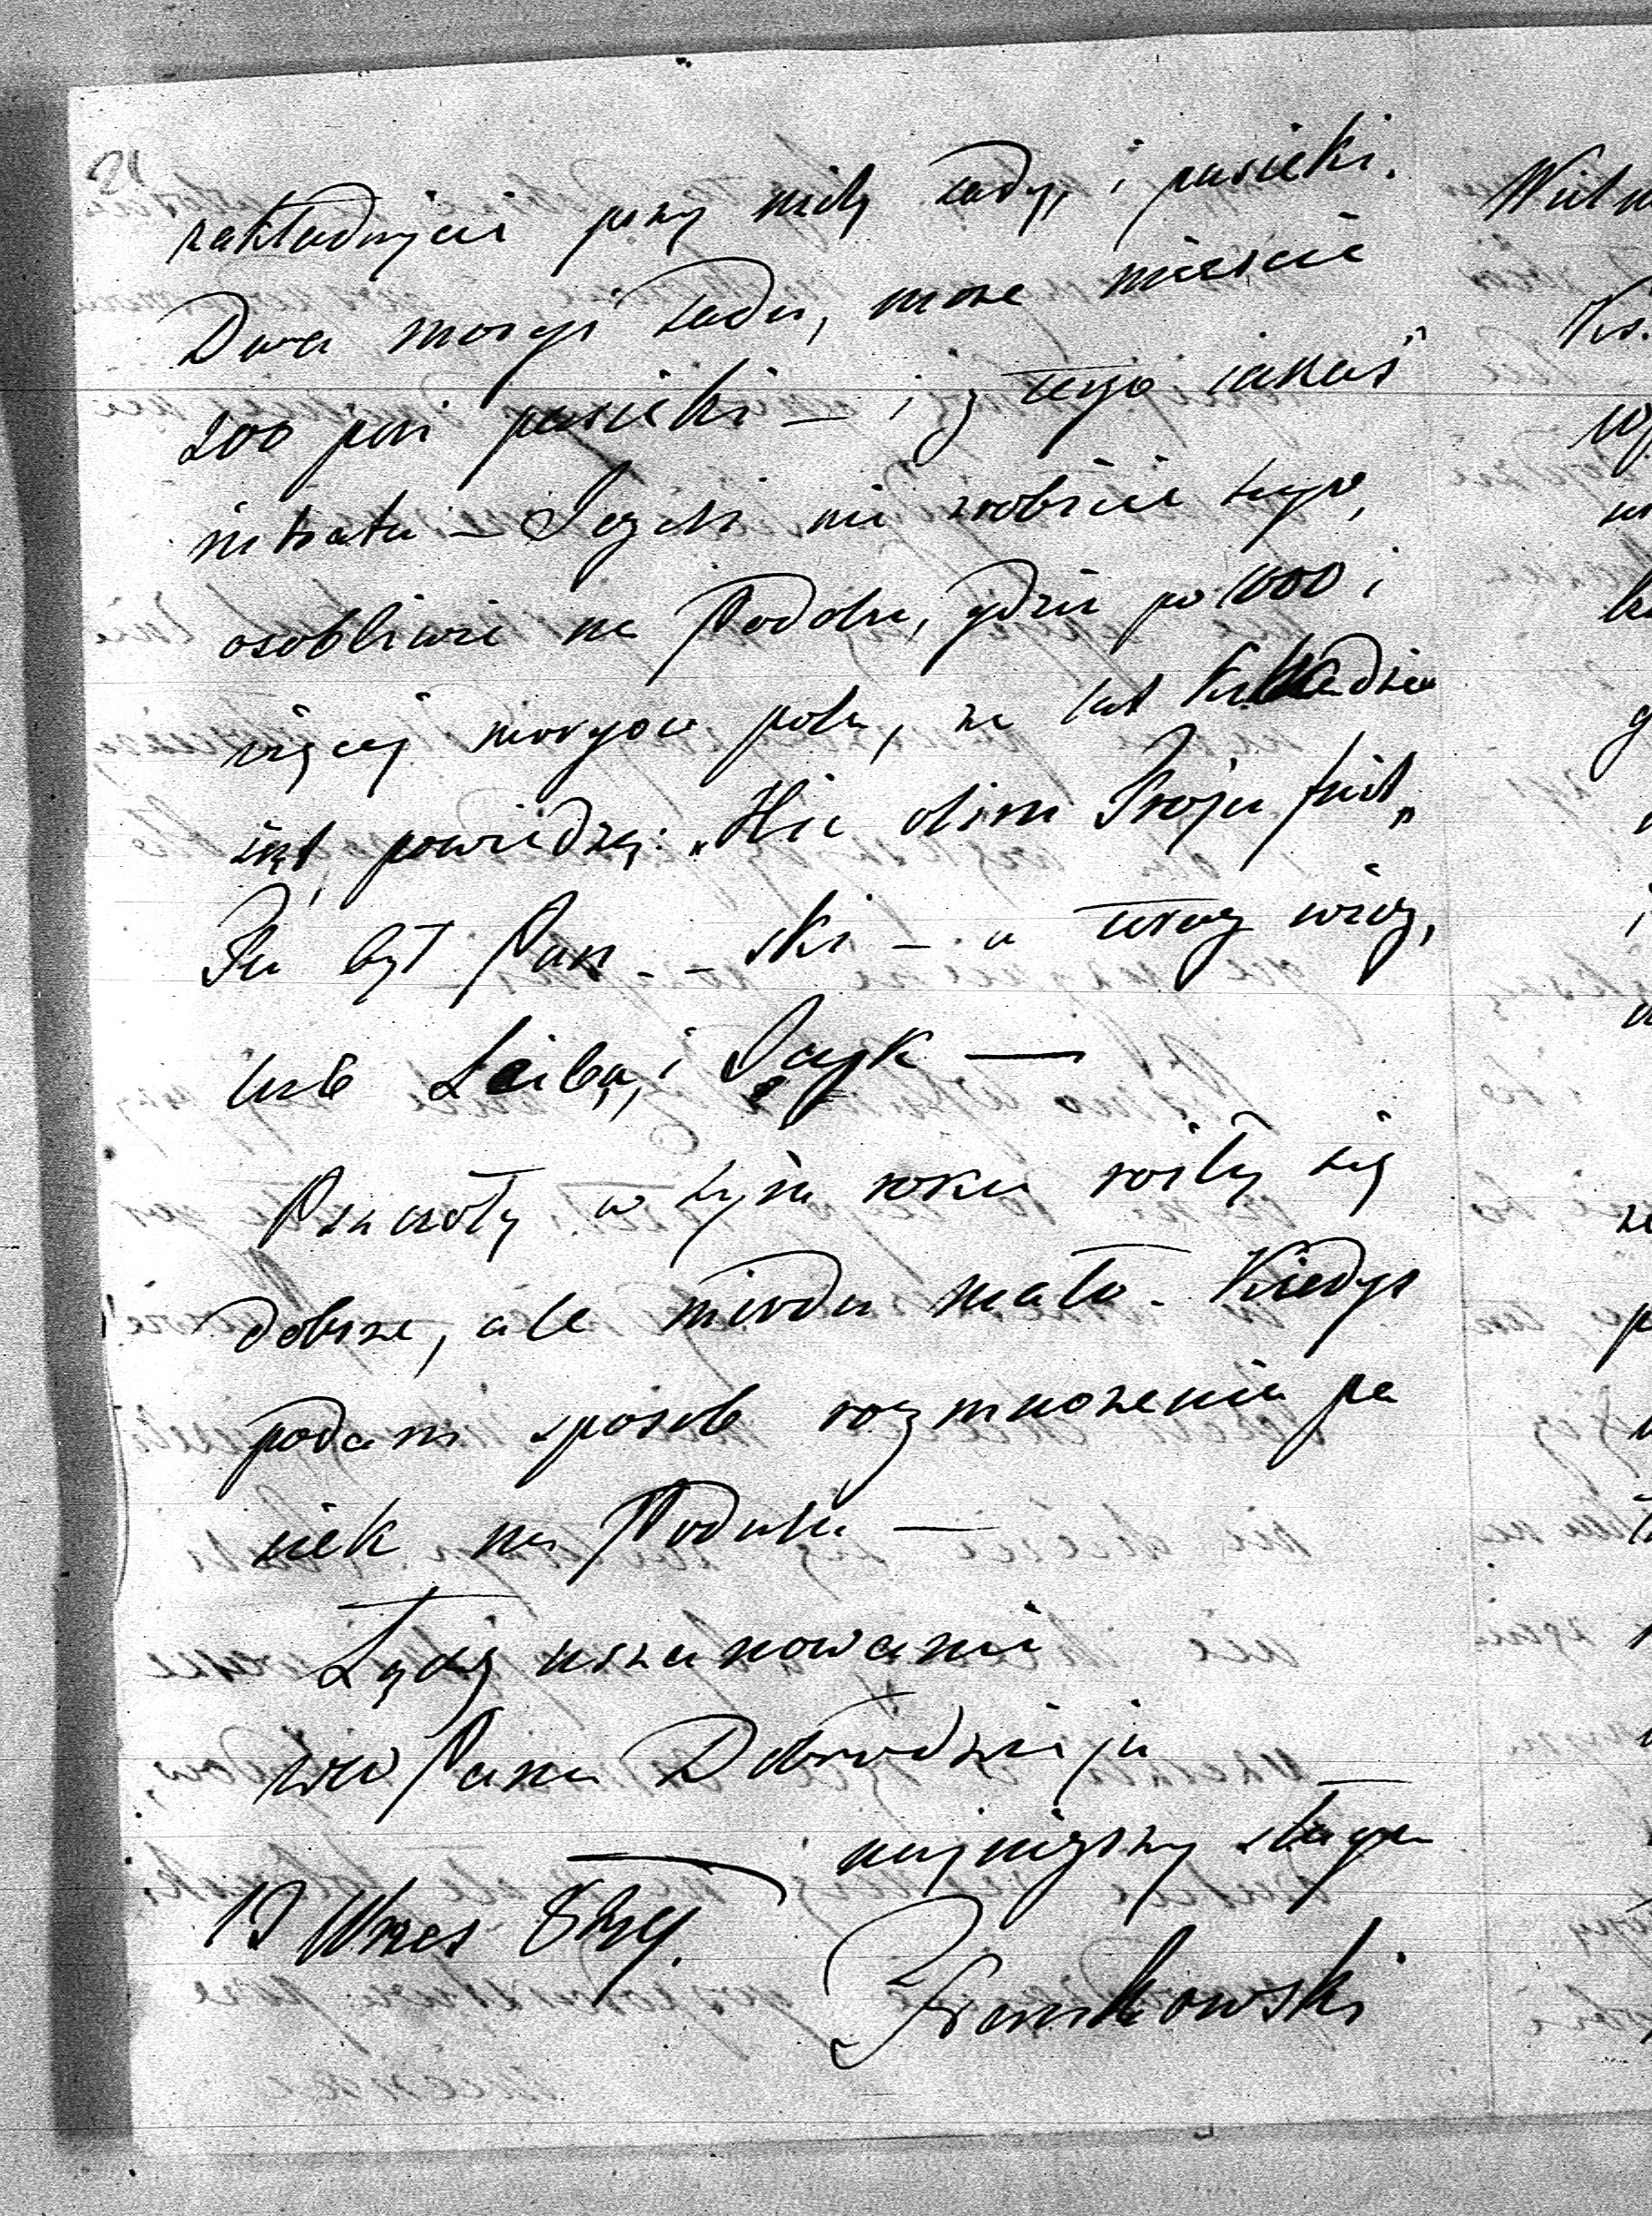 zakładajcie przy niéj sady, i pasieki.
Dwa morgi sadu, może mieścić
200 pni pasieki — i z tego jakaś
intrata — Jeżeli nie zrobicie tego,
osobliwie na Podolu, gdzie po 1000 i
więcej morgów pola, za lat kilkadzie
siąt, powiedzą: „Hic olim Troja fuit„
Tu był Pan - - ski — a teraz
lub Leiba, i Icyk —
Pszczoły w tym roku roiły się
dobrze, ale miodu mało. Kiedyś
podam sposob rozmnożenia pa
siek na Podolu —
Łączę uszanowanie
WW Pana Dobrodzieja
najniższy sługa
Wrzes